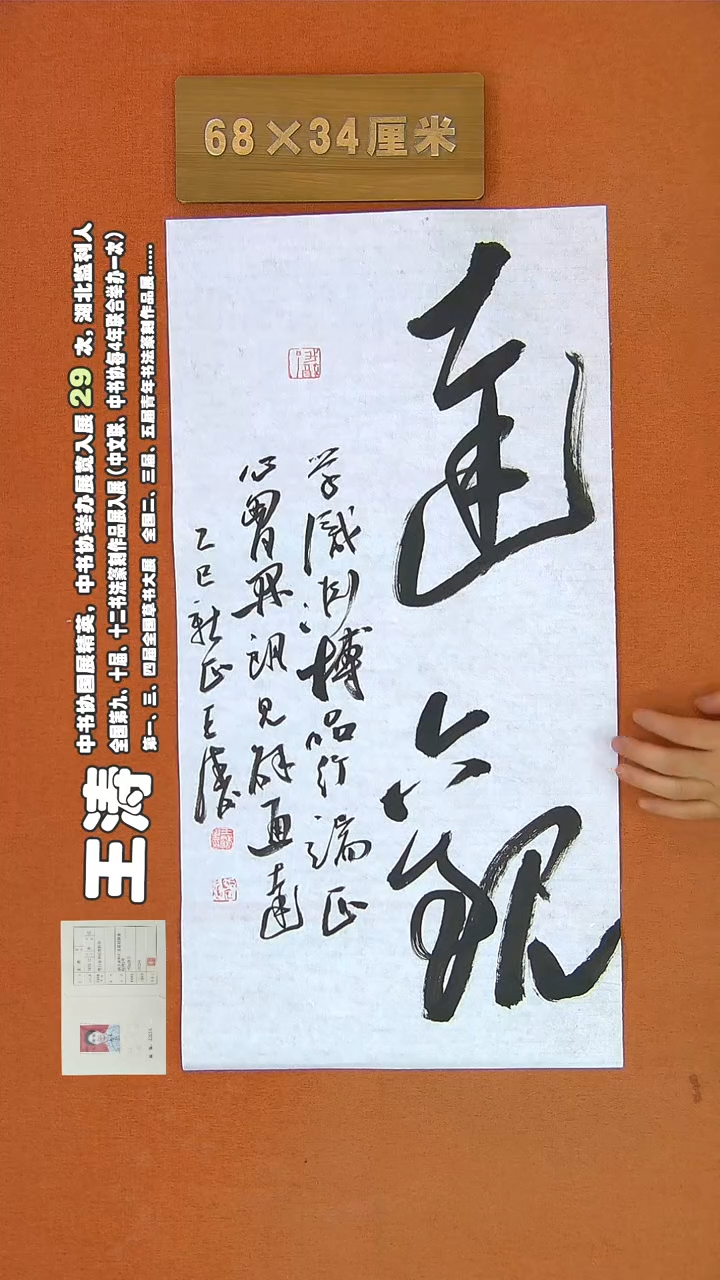 68×34厘米
達觀
学识渊博品行端正
心胸开朗见解通达
乙巳新正王涛
王涛
中书协国展精英，中书协举办展赛入展29次，湖北监利人
全国第九、十届、十二书法篆刻作品展入展（中文联、中书协每4年联合举办一次）
第一、三、四届全国草书大展 全国二、三届、五届青年书法篆刻作品展......